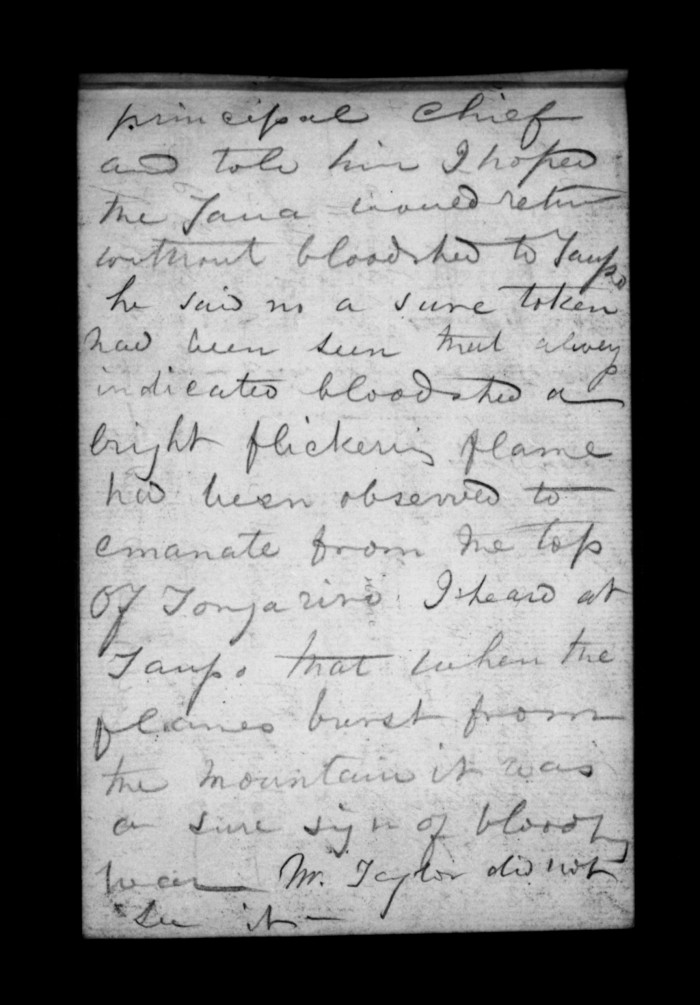 principal Chief
and tole him I hoped
the Taua would return
without bloodshed to Taupo
he said no a sure token
had been seen that alway
indicated bloodshed a
bright flickering flame
had been observed to
emanate from the top
Of Tongariro. I heard at
Taupo that when the
flames burst from
the mountain it was
a sure sign of bloody
war Mr. Taylor did not
see it -